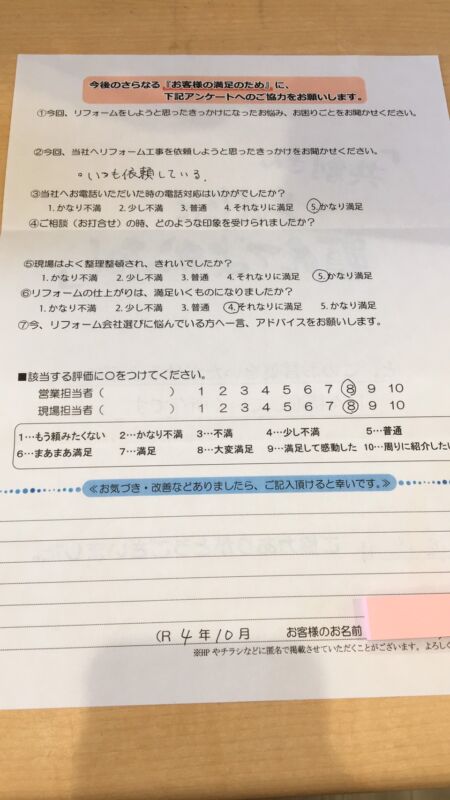 今後のさらなる『お客様の満足のため』に、
下記アンケートへのご協力をお願いします。
①今回、リフォームをしようと思ったきっかけになったお悩み、お困りごとをお聞かせください。
②今回、当社へリフォーム工事を依頼しようと思ったきっかけをお聞かせください。
。いつも依頼している。
③当社へお電話いただいた時の電話対応はいかがでしたか？
1. かなり不満 2. 少し不満 3. 普通 4. それなりに満足 5. かなり満足
④ご相談（お打合せ）の時、どのような印象を受けられましたか？
⑤現場はよく整理整頓され、きれいでしたか？
1. かなり不満 2. 少し不満 3. 普通 4. それなりに満足 5. かなり満足
⑥リフォームの仕上がりは、満足いくものになりましたか？
1. かなり不満 2. 少し不満 3. 普通 4. それなりに満足 5. かなり満足
⑦今、リフォーム会社選びに悩んでいる方へ一言、アドバイスをお願いします。
■該当する評価に〇をつけてください。
営業担当者（ ） 1 2 3 4 5 6 7 8 9 10
現場担当者（ ） 1 2 3 4 5 6 7 8 9 10
1…もう頼みたくない 2…かなり不満 3…不満 4…少し不満 5…普通
6…まあまあ満足 7…満足 8…大変満足 9…満足して感動した 10…周りに紹介したい
≪お気づき・改善などありましたら、ご記入頂けると幸いです。≫
（R 4 年 10 月 お客様のお名前
※HPやチラシなどに匿名で掲載させていただくことがございます。よろしく